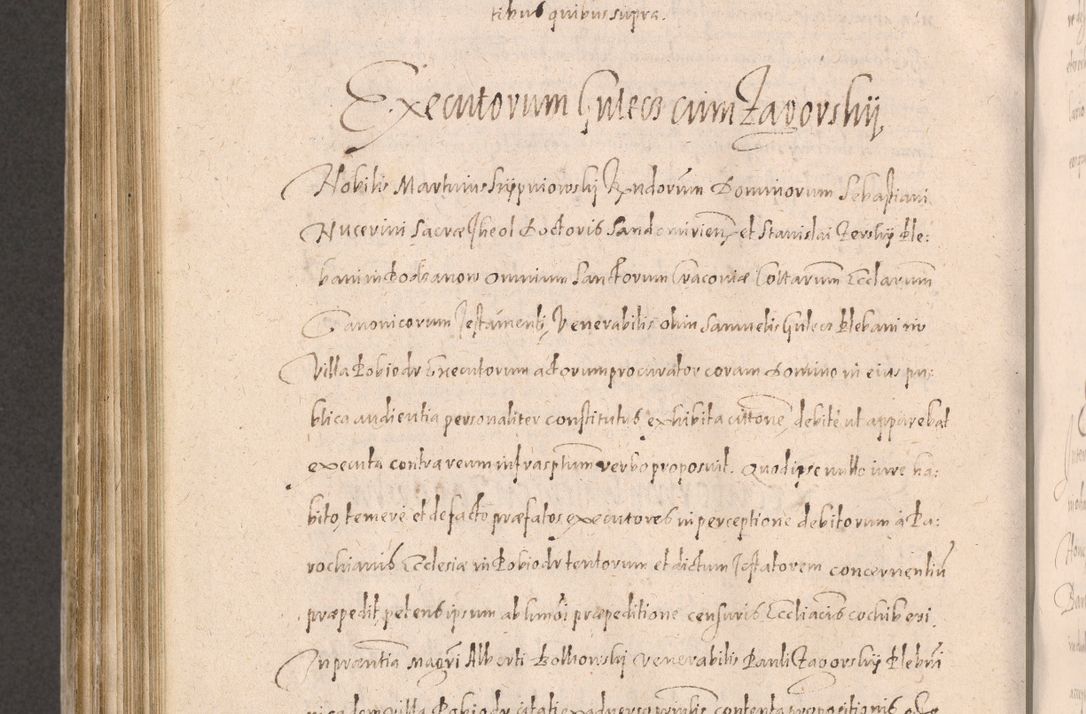 tibus quibus supra.
Executorum Gutecz cum Zagorskij
Nobilis Martinus Skypniowskij Rndorum Dominorum Sebastiani
Nucerini Sacræ Theol Doctoris Sandomirien et Stanislai Zerskij Ple:
bani in Bodzanow omnium Sanctorum Cracoviæ Collatarum Ecclarum
Canonicorum Testamenti Venerabilis olim Samuelis Gutecz Plebani in
Villa Pobiedr Executorum actorum procurator coram Domino in eius pu:
blica audientia personaliter constitutus exhibita citone debite ut apparebat
executa contra reum infrascptum verbo proposuit. Quod ipse nullo iure ha:
bito temere et de facto præfatos executores in perceptione debitorum à Pa:
rochianis Ecclesiæ in Pobiedr tentorum et dictum Testatorem concernentiu
præpedit, petens ipsum ab hmoi præpeditione censuris Eccliacis cochiberi.
In præntia Magri Alberti venerabilis Pauli Zagorskij Plebni
in eadem villa Pobiedr citati ex adverso prmilis contenta propositionis